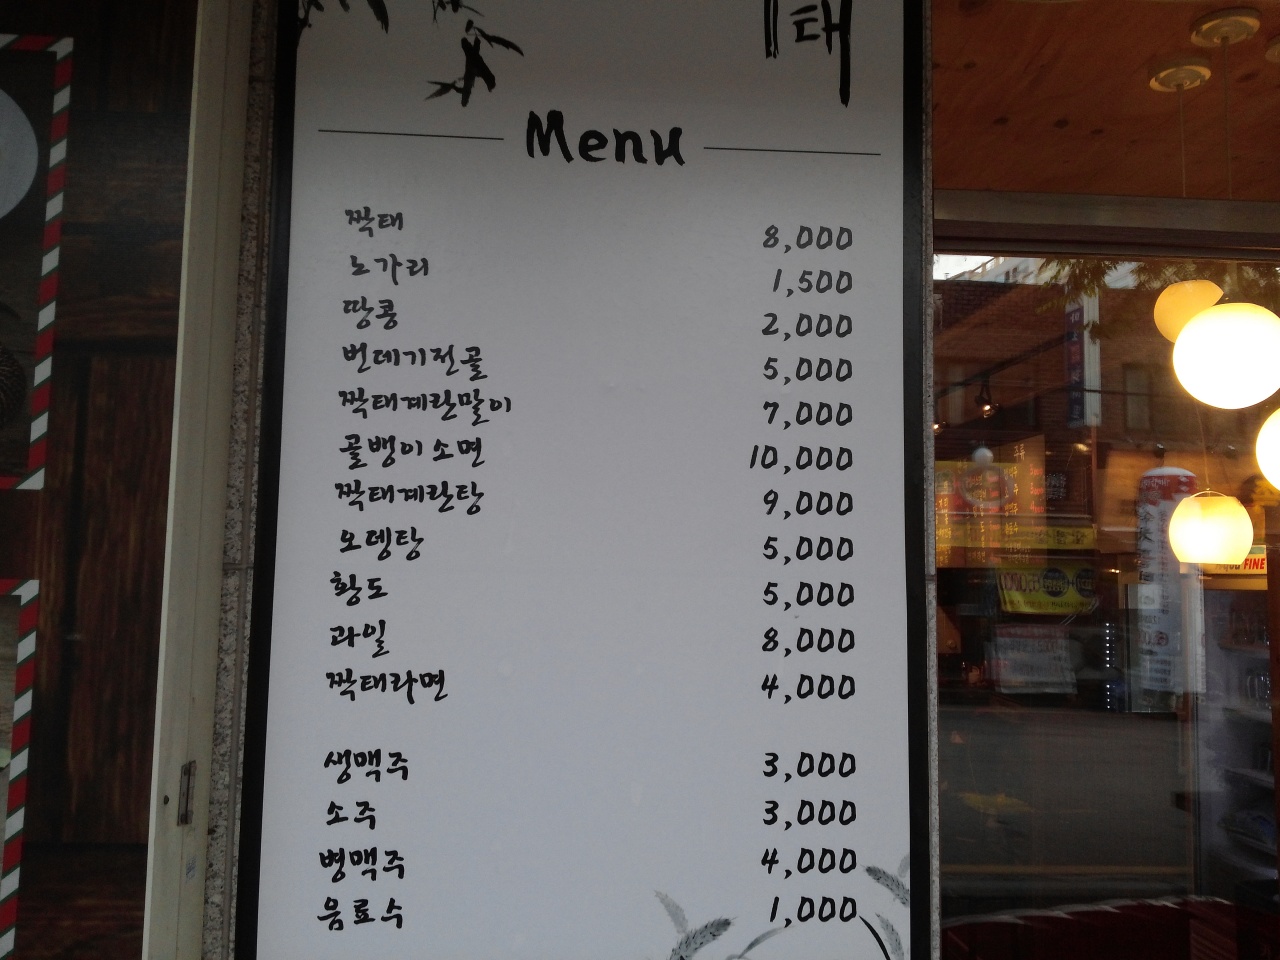 태
Menu
짝태 8,000
노가리 1,500
땅콩 2,000
번데기전골 5,000
짝태계란말이 7,000
골뱅이소면 10,000
짝태계란탕 9,000
오뎅탕 5,000
황도 5,000
과일 8,000
짝태라면 4,000
생맥주 3,000
소주 3,000
병맥주 4,000
음료수 1,000
FINE